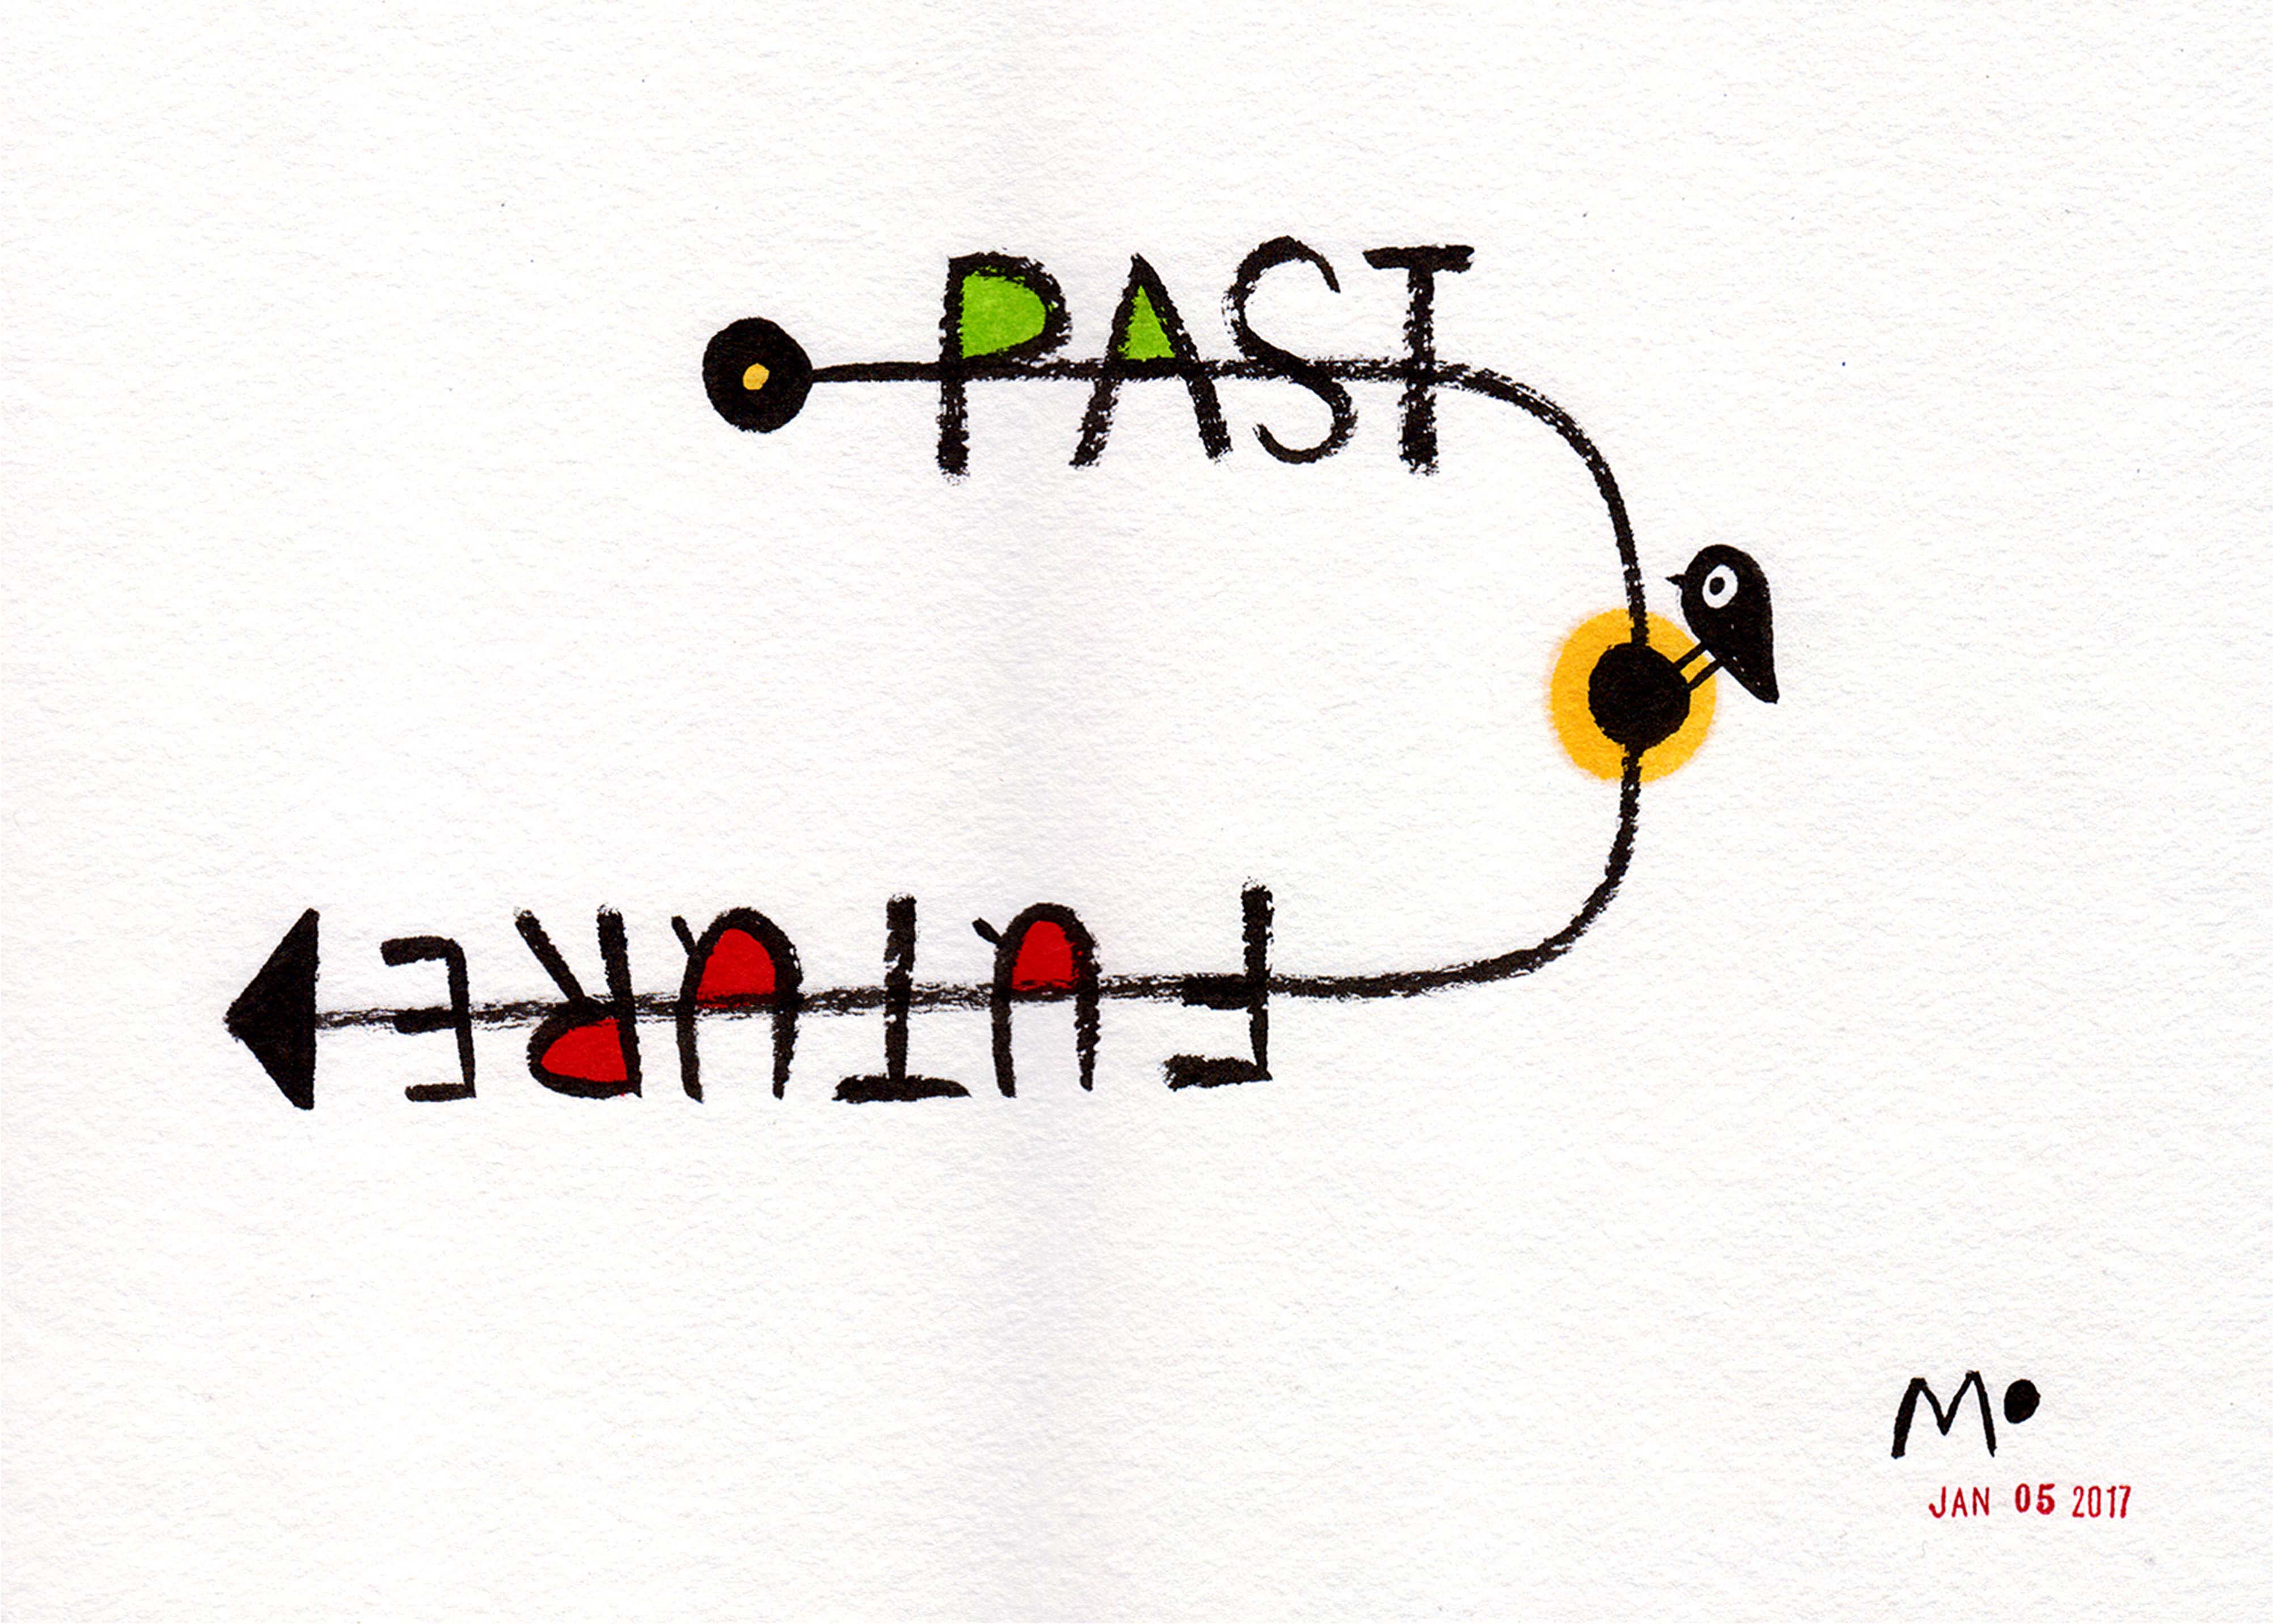 PAST
FUTURE
Mo
JAN 05 2017